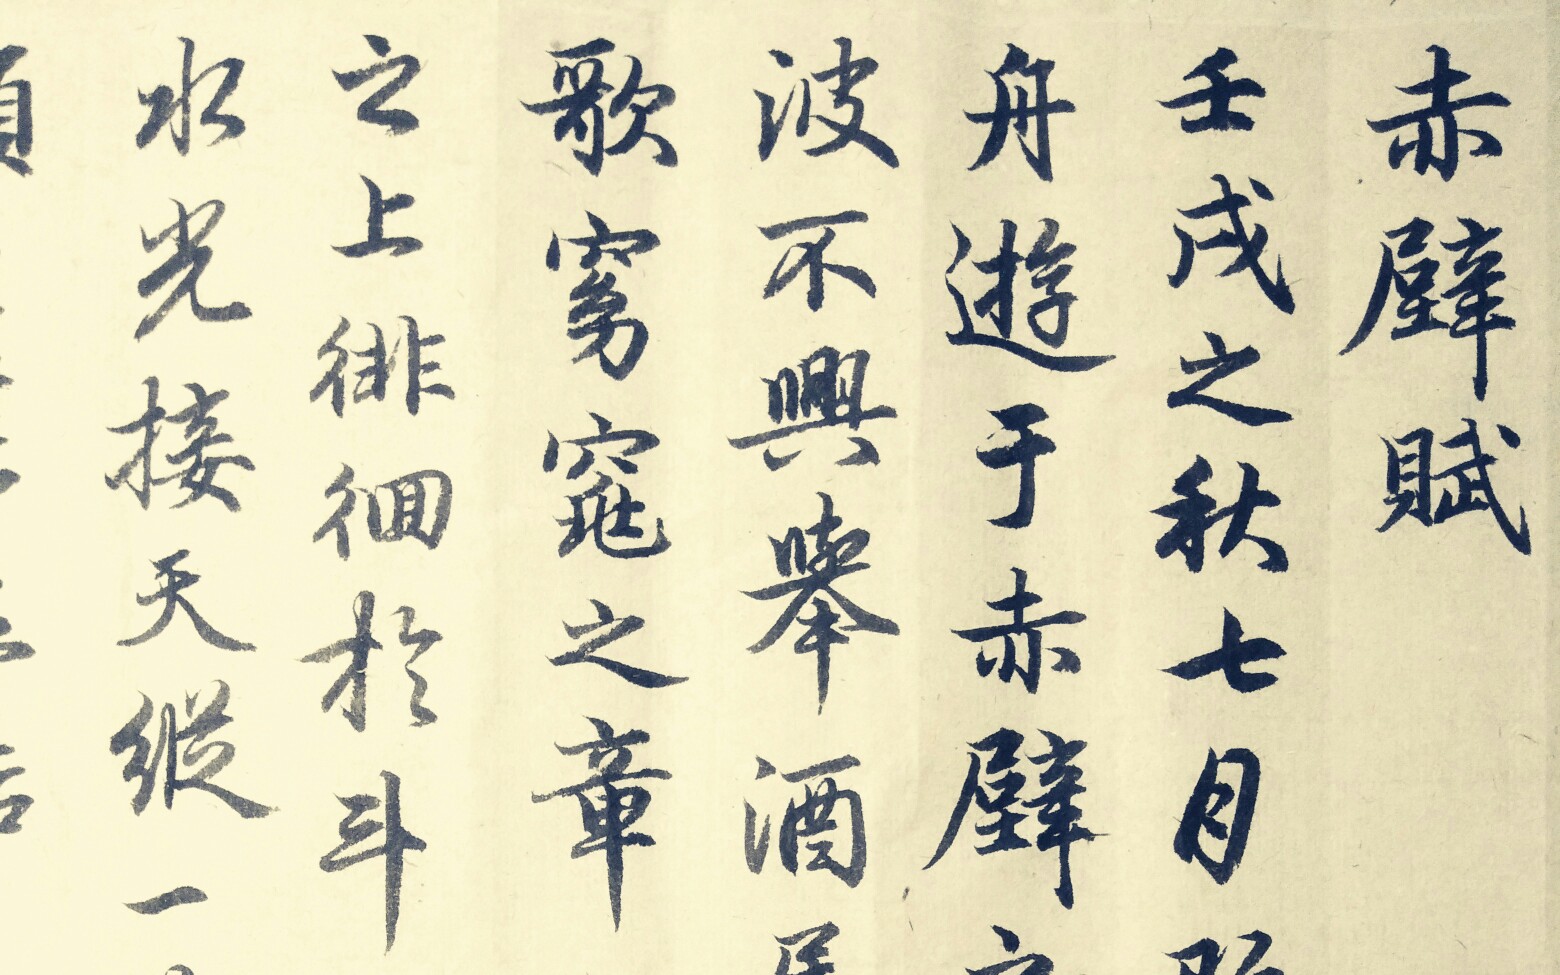 赤壁賦
壬戌之秋七月既
舟遊于赤壁之
波不興舉酒屬
歌窈窕之章
之上徘徊於斗
水光接天縱一